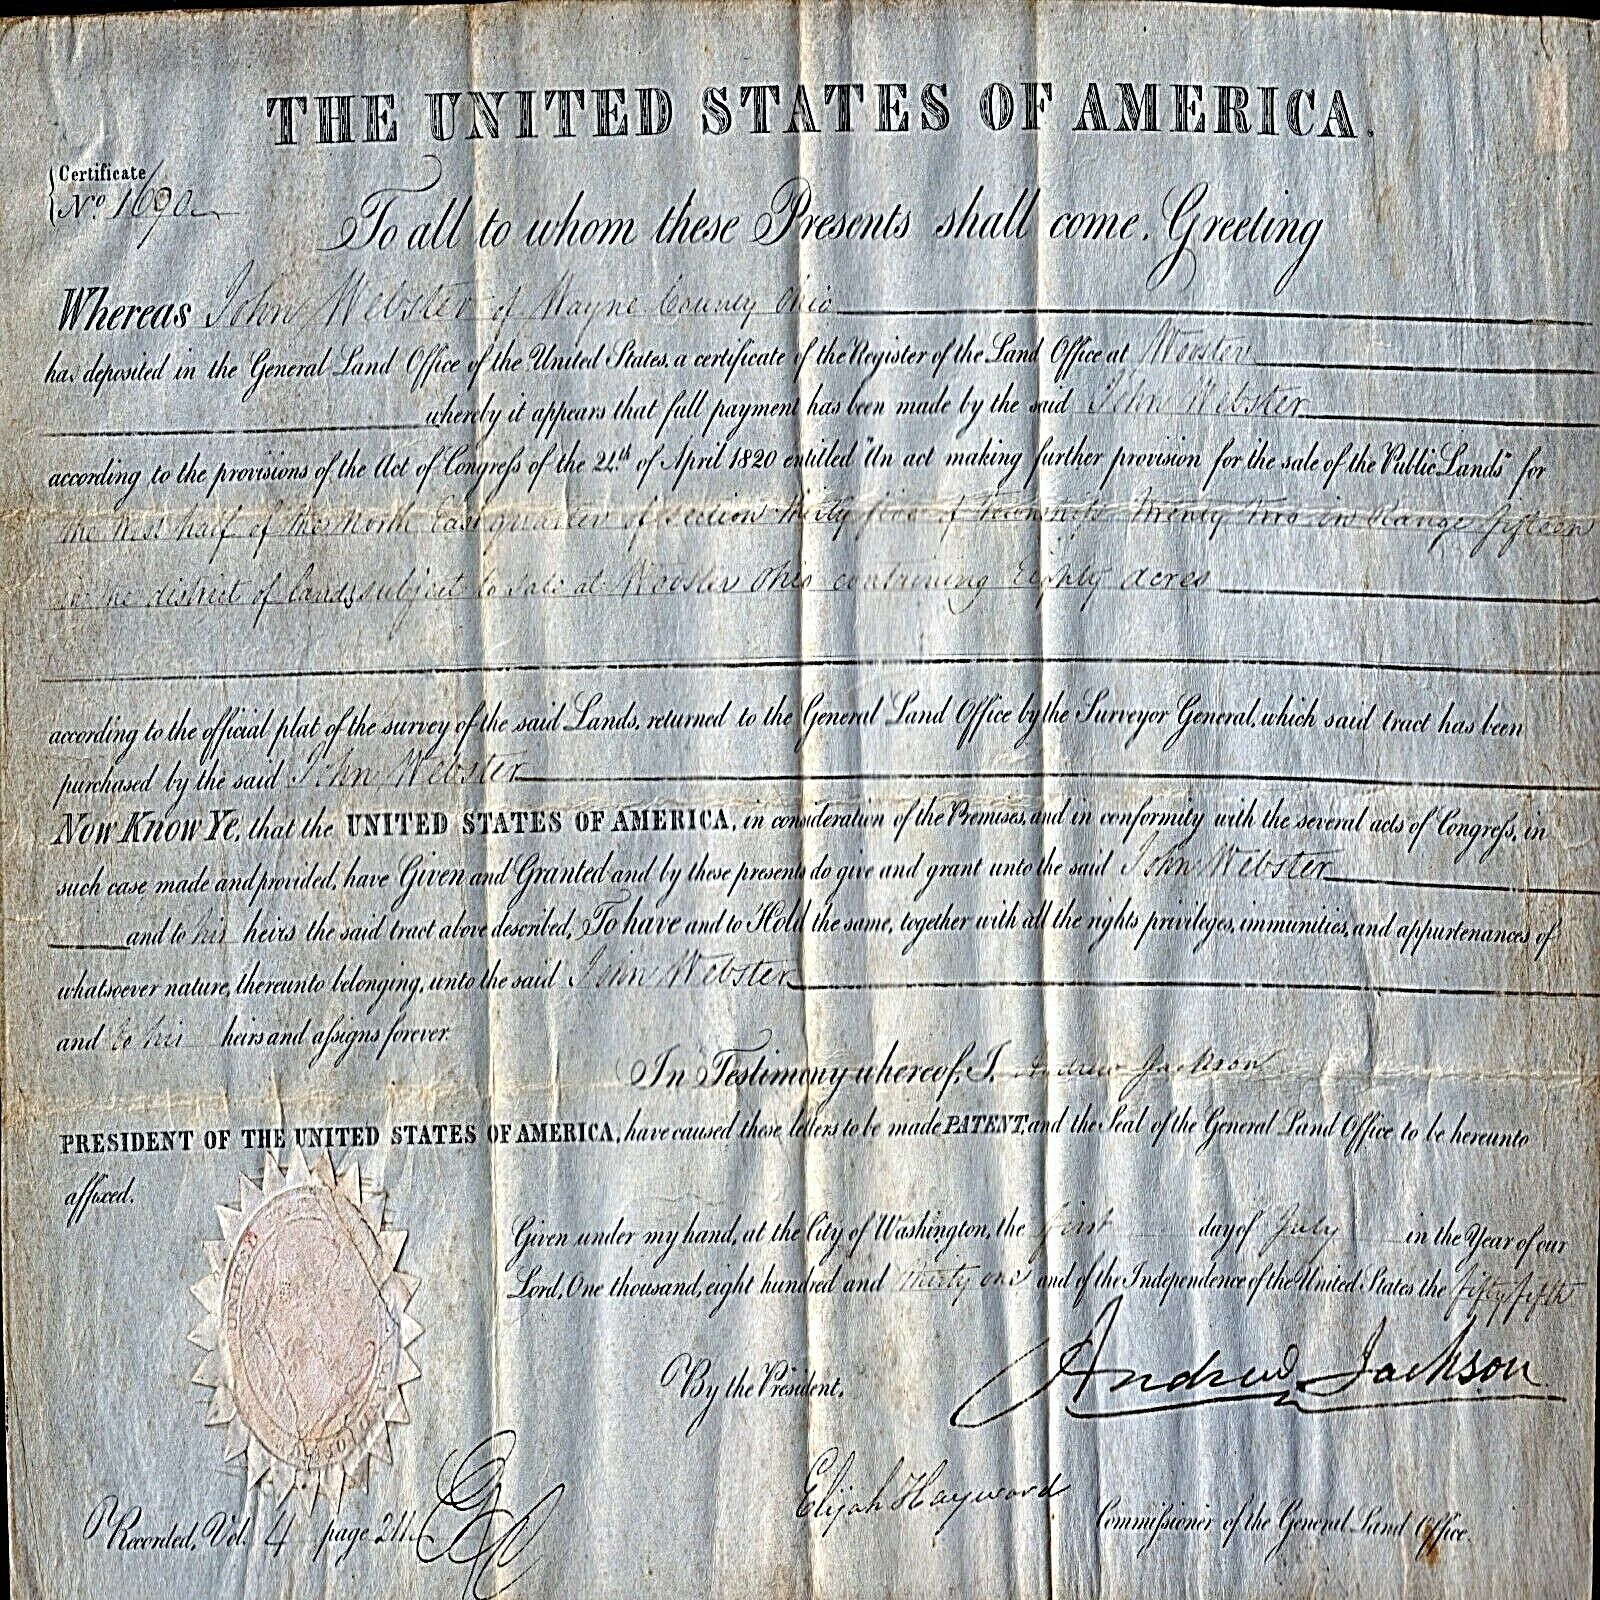 THE UNITED STATES OF AMERICA.
Certificate
No. 1690
To all to whom these Presents shall come, Greeting
Whereas John Webster of Wayne County Ohio
has deposited in the General Land Office of the United States, a certificate of the Register of the Land Office at Wooster
whereby it appears that full payment has been made by the said John Webster
according to the provisions of the Act of Congress of the 24th of April 1820 entitled "An act making further provision for the sale of the Public Lands" for
the West half of the North East quarter of section thirty five of Township twenty two in Range fifteen
in the district of lands subject to sale at Wooster Ohio containing Eighty acres
according to the official plat of the survey of the said Lands, returned to the General Land Office by the Surveyor General, which said tract has been
purchased by the said John Webster
Now Know Ye, that the UNITED STATES OF AMERICA, in consideration of the Premises, and in conformity with the several acts of Congress, in
such case made and provided, have Given and Granted and by these presents do give and grant unto the said John Webster
and to his heirs the said tract above described, To have and to Hold the same, together with all the rights privileges, immunities, and appurtenances of
whatsoever nature, thereunto belonging, unto the said John Webster
and to his heirs and assigns forever.
In Testimony whereof, I, Andrew Jackson
PRESIDENT OF THE UNITED STATES OF AMERICA, have caused these letters to be made PATENT, and the Seal of the General Land Office to be hereunto
affixed.
Given under my hand, at the City of Washington, the first day of July in the Year of our
Lord, One thousand, eight hundred and thirty one and of the Independence of the United States the fifty fifth
By the President,
Andrew Jackson
Elijah Hayward Commissioner of the General Land Office.
Recorded, Vol. 4 page 211